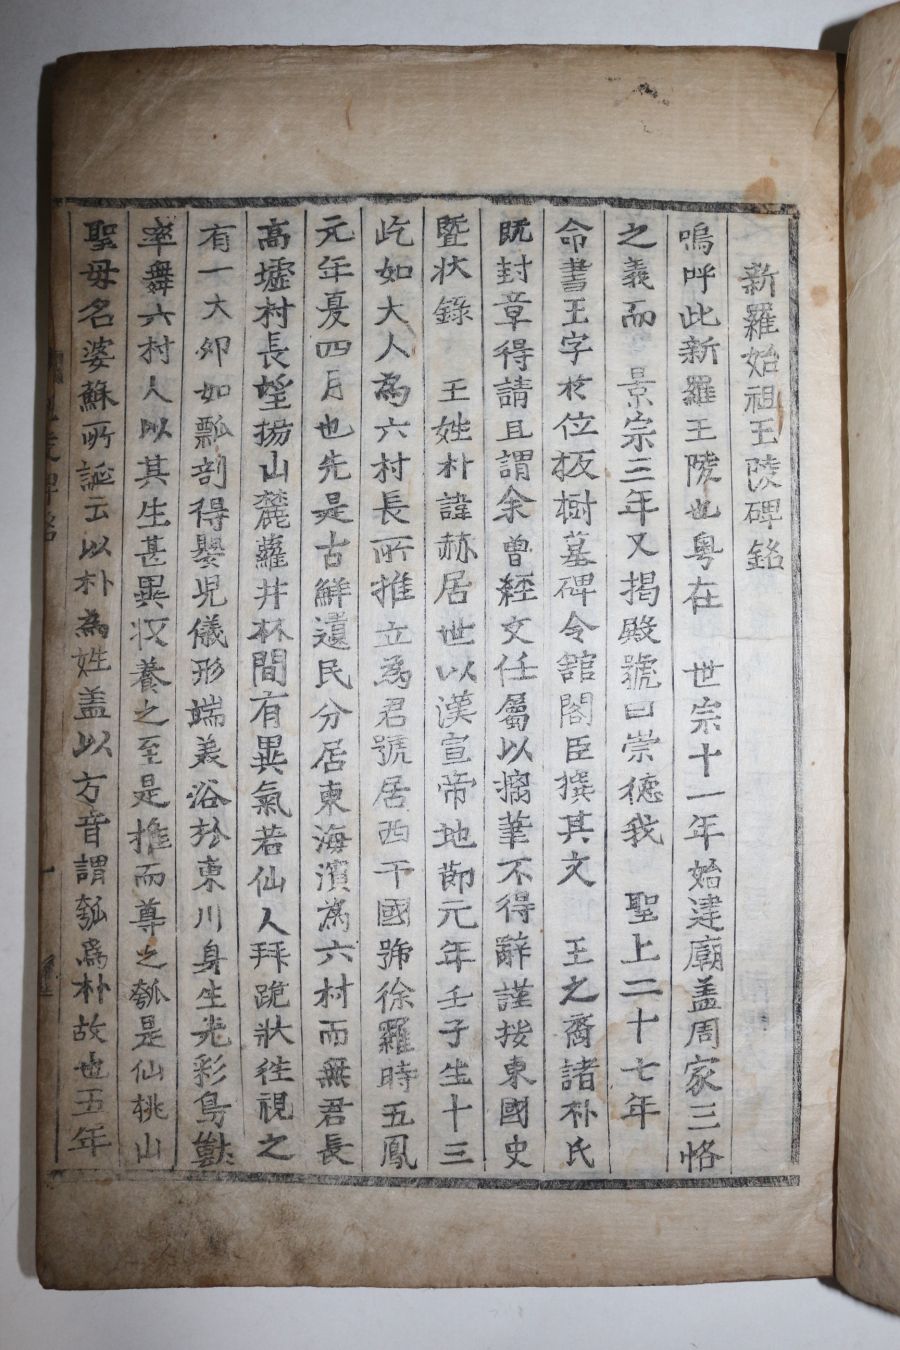 新羅始祖王陵碑銘
嗚呼此新羅王陵也粤在 世宗十一年始建廟盖周家三恪
之義而 景宗三年又揭殿號曰崇德我 聖上二十七年
命書王字於位板樹墓碑令舘閣臣撰其文 王之裔諸朴氏
旣封章得請且謂余曾經文任屬以搦筆不得辭謹按東國史
曁狀錄 王姓朴諱赫居世以漢宣帝地節元年壬子生十三
屹如大人為六村長所推立為君號居西干國號徐羅時五鳳
元年夏四月也先是古鮮遺民分居東海濱為六村而無君長
高墟村長望揚山麓蘿井林間有異氣若仙人拜跪狀徃視之
有一大卵如瓢剖得嬰児儀形端美浴於東川身生光彩鳥獸
率舞六村人以其生甚異収養之至是推而尊之瓠是仙桃山
聖母名婆蘇所誕云以朴為姓盖以方音謂瓠爲朴故也五年